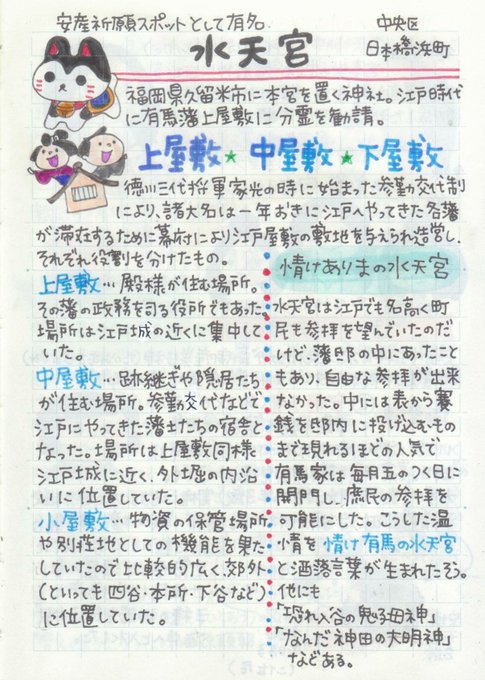 安産祈願スポットとして有名
水天宮
中央区
日本橋浜町
福岡県久留米市に本宮を置く神社。江戸時代
に有馬藩上屋敷に分霊を勧請。
上屋敷★中屋敷★下屋敷
徳川三代将軍家光の時に始まった参勤交代制
により、諸大名は一年おきに江戸へやってきた各藩
が滞在するために幕府により江戸屋敷の敷地を与えられ造営し、
それぞれ役割を分けたもの。
上屋敷…殿様が住む場所。
その藩の政務を司る役所でもあった。
場所は江戸城の近くに集中して
いた。
中屋敷…跡継ぎや隠居たち
が住む場所。参勤交代などで
江戸にやってきた藩士たちの宿舎と
なった。場所は上屋敷同様
江戸城に近く、外堀の内沿
いに位置していた。
小屋敷…物資の保管場所
や別荘地としての機能を果た
していたので比較的広く、郊外
(といっても四谷・本所・下谷など)
に位置していた。
情けありまの水天宮
水天宮は江戸でも名高く町
民も参拝を望んでいたのだ
けど、藩邸の中にあったこと
もあり、自由な参拝が出来
なかった。中には表から賽
銭を邸内に投げ込むもの
まで現れるほどの人気で
有馬家は毎月五のつく日に
開門し、庶民の参拝を
可能にした。こうした温
情を情け有馬の水天宮
と洒落言葉が生まれたそう。
他にも
「恐れ入谷の鬼子母神」
「なんだ神田の大明神」
などある。